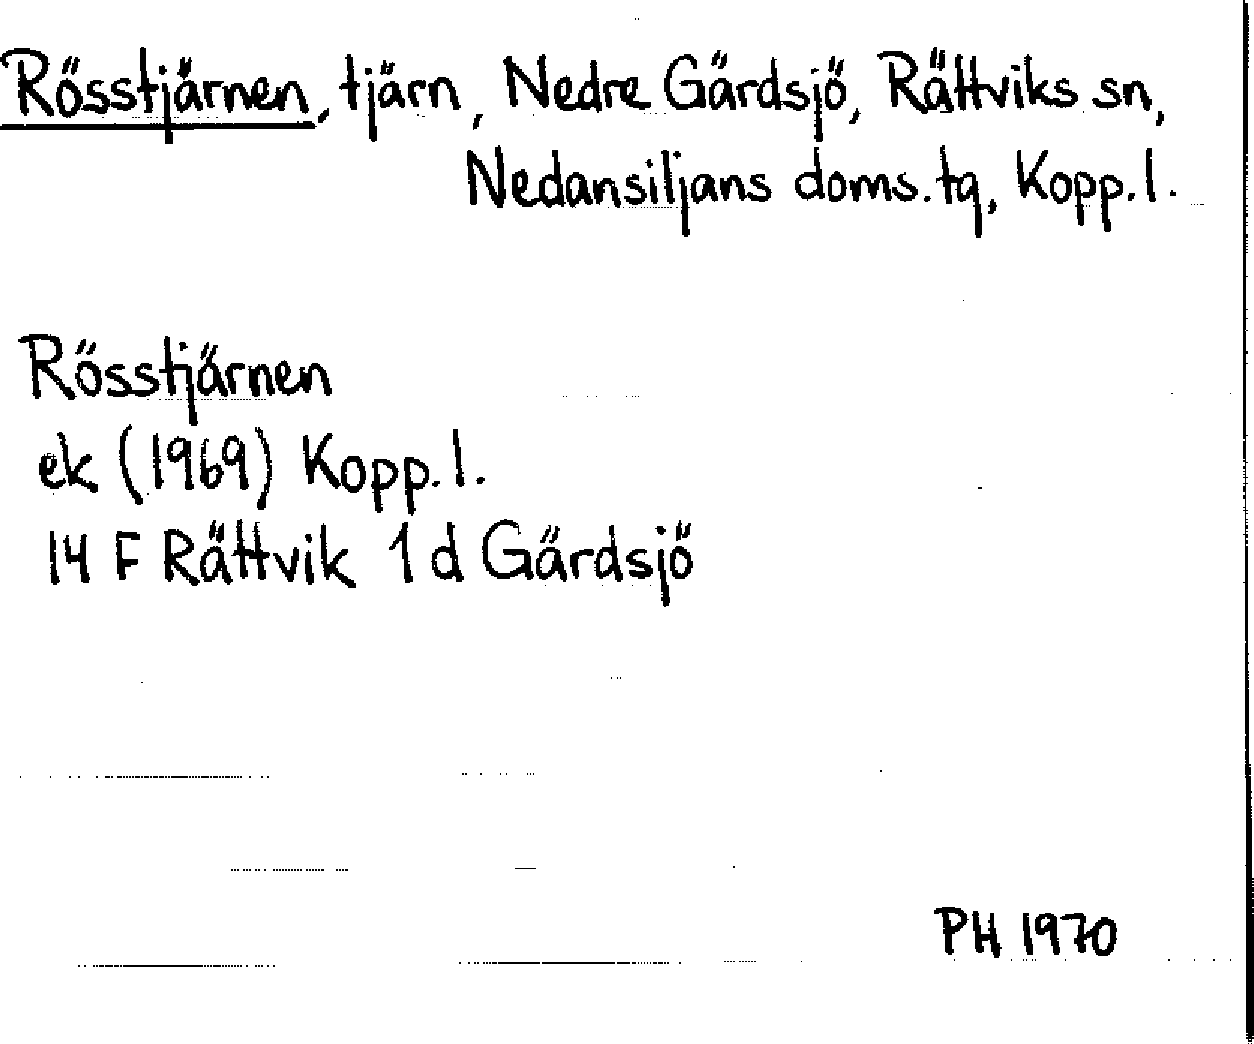 Rösstjärnen, tjärn, Nedre Gärdsjö, Rättviks sn,
Nedansiljans doms.tg, Kopp.l.
Rösstjärnen
ek (1969) Kopp.l.
14 F Rättvik 1 d Gärdsjö
PH 1970